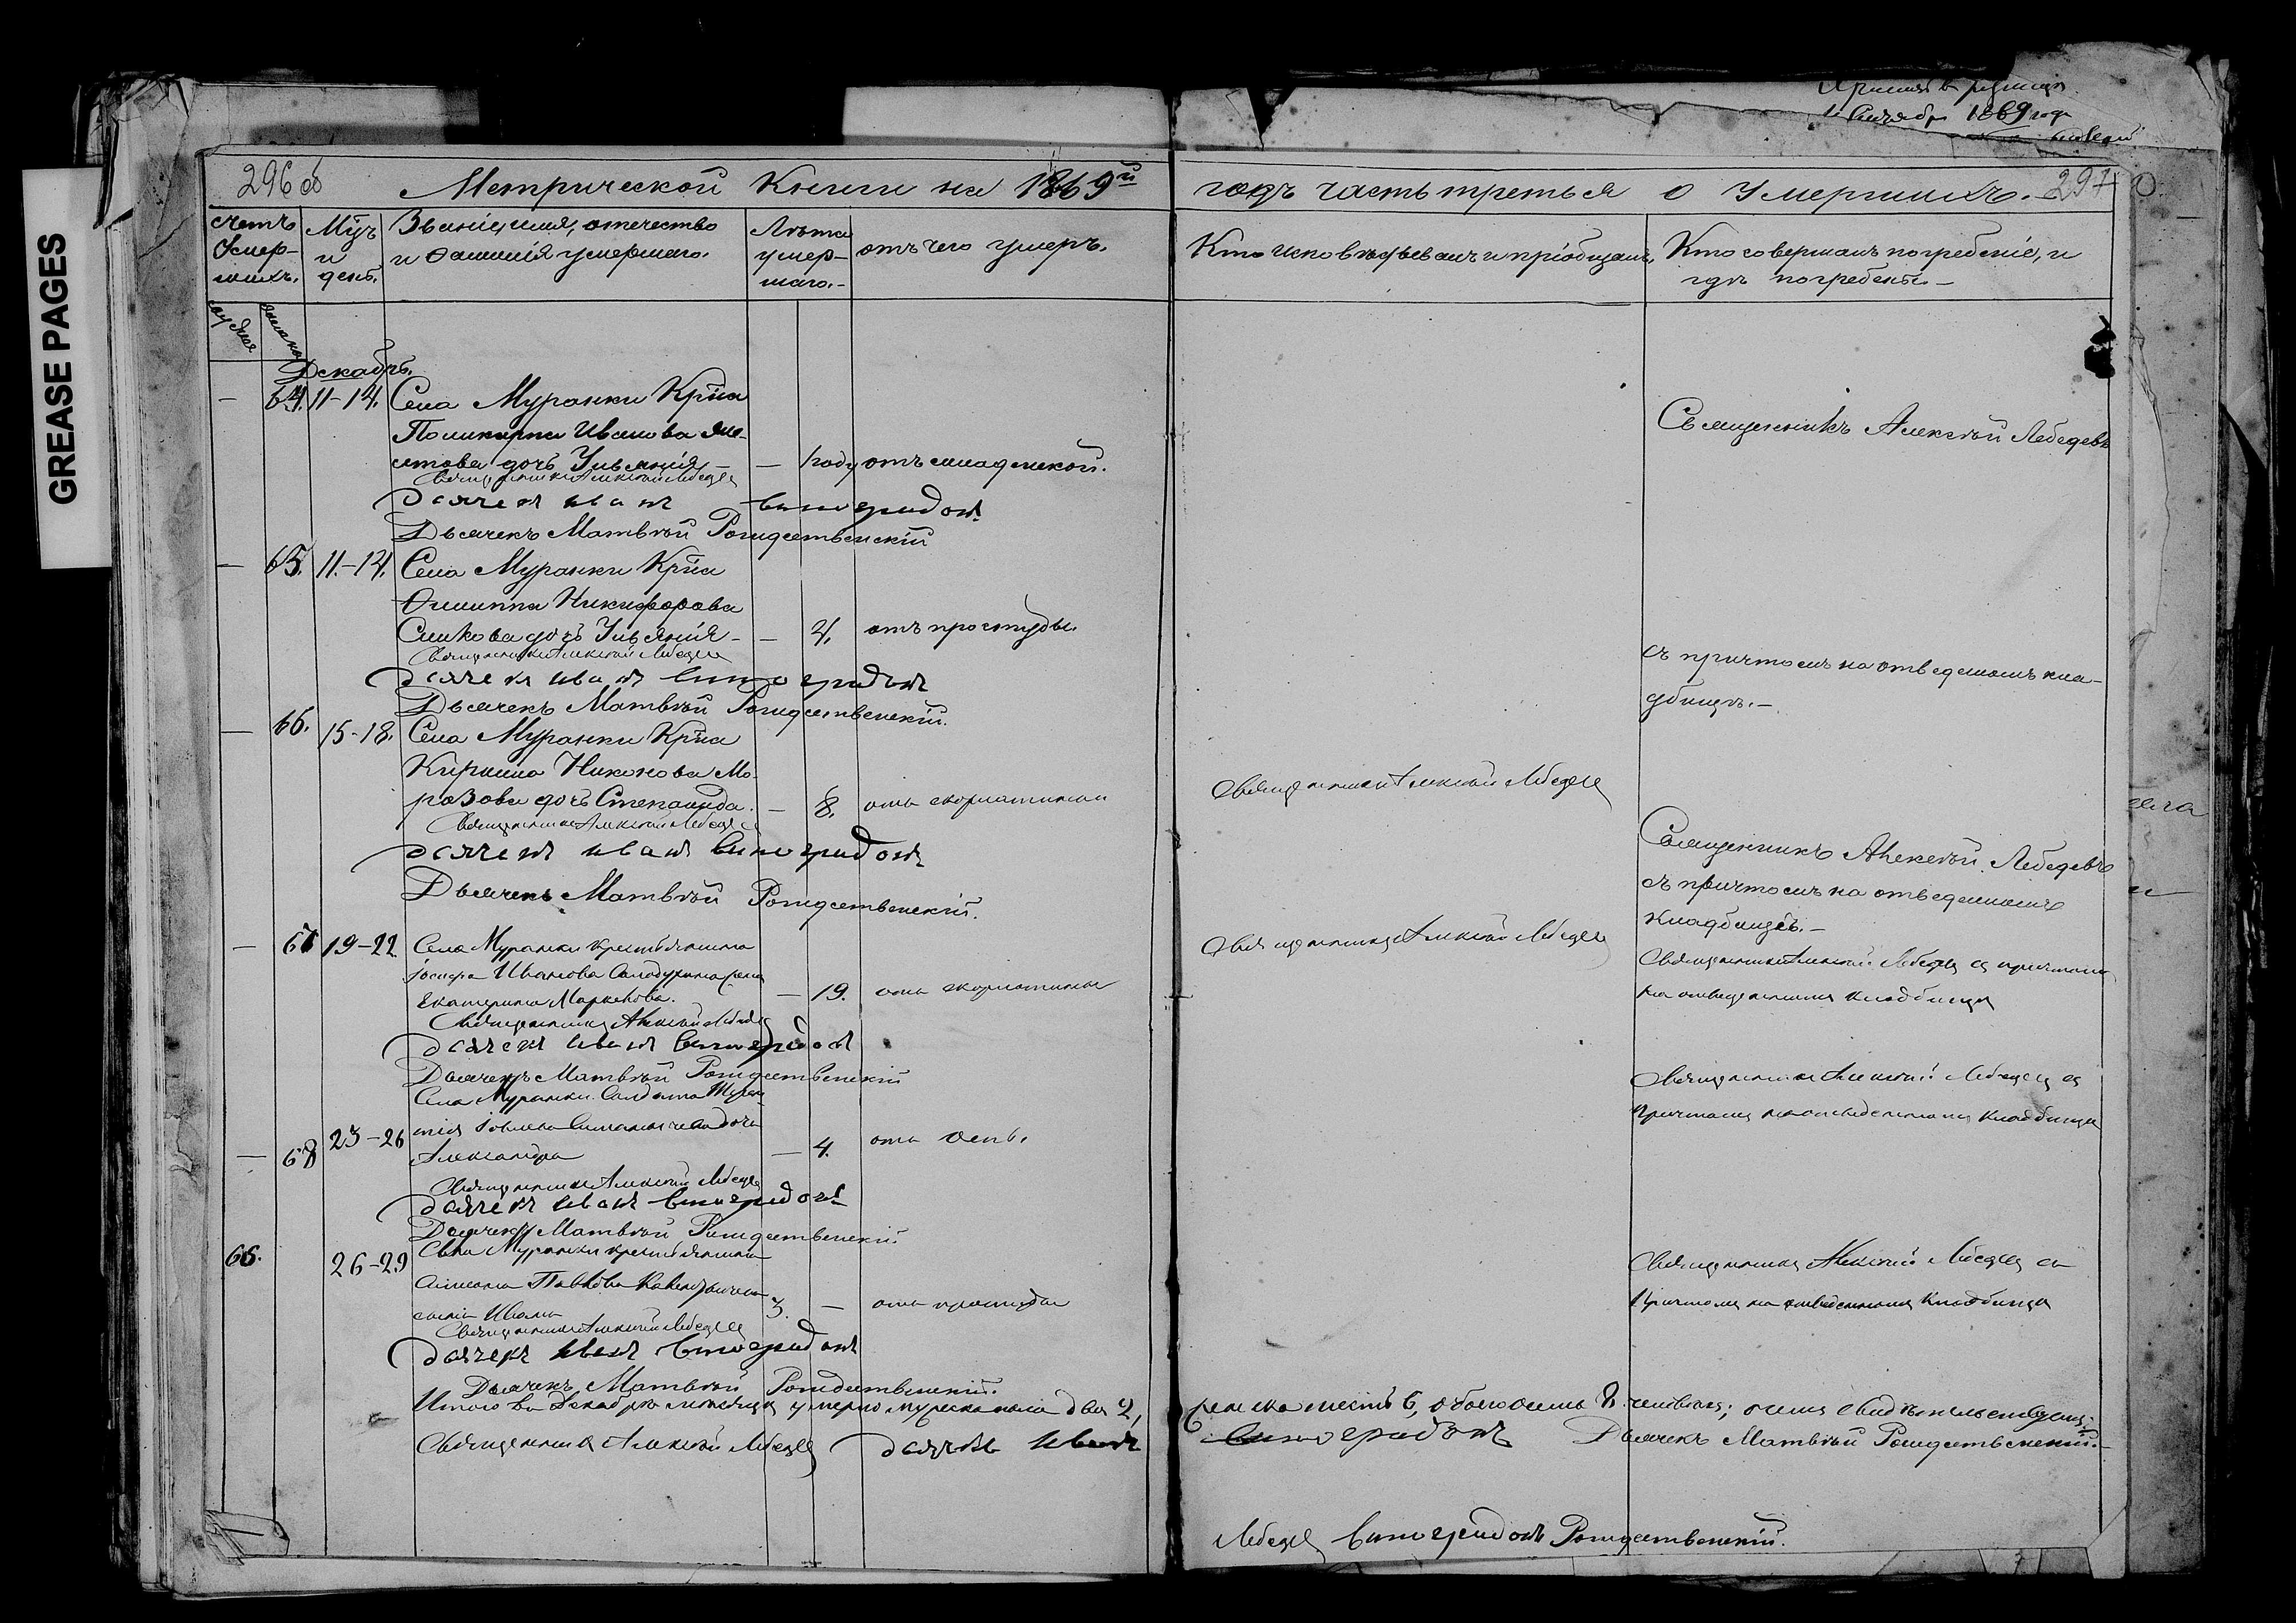 GREASE PAGES
1869 года
296 об
Метрической Книги на 1869й
годъ часть третья о Умершихъ.
297
счетъ Умер-шихъ.
Мцъ и день.
Званіе, имя, отечество
и Фамилія умершаго.
Лѣта умер-шаго.
отъ чего умеръ.
Кто исповѣдывалъ и пріобщалъ.
Кто совершалъ погребеніе, и
гдѣ погребенъ.
Декабрь.
— 64. 11-14. Села Муранки Кр͠на
Поликарпа Иванова
дочь Ульянія — — 1 году отъ младенской.
Священникъ Алексѣй Лебедевъ
Священникъ Алексѣй Лебедевъ
дьячекъ Иванъ Виноградовъ
Дьячекъ Матвѣй Рождественскій
— 65. 11-14. Села Муранки Кр͠на
Филиппа Никифорова
дочь Ульянія — — 4. отъ простуды.
Священникъ Алексѣй Лебедевъ
дьячекъ Иванъ Виноградовъ
Дьячекъ Матвѣй Рождественскій.
съ причтомъ на отведенномъ кла-
дбищѣ.—
— 66. 15-18. Села Муранки Кр͠на
Никонова Мо-
розова дочь Степанида. — 8. отъ скорлатины
Священникъ Алексѣй Лебедевъ
Священникъ Алексѣй Лебедевъ
дьячекъ Иванъ Виноградовъ
Дьячекъ Матвѣй Рождественскій.
Священникъ Алексѣй Лебедевъ
съ причтомъ на отведенномъ
кладбищѣ.—
— 67 19-22 Села Муранки крестьянина
Іосифа Иванова жена
Екатерина Маркелова. — 19. отъ скорлатины
Священникъ Алексѣй Лебедевъ
Священникъ Алексѣй Лебедевъ съ причтомъ
на отведенномъ кладбищѣ
Священникъ Алексѣй Лебедевъ
дьячекъ Иванъ Виноградовъ
Дьячекъ Матвѣй Рождественскій
— 68 23-26 Села Муранки Солдата
Іовлева дочь
Александра — 4. отъ оспы.
Священникъ Алексѣй Лебедевъ съ
причтомъ на отведенномъ кладбищѣ
Священникъ Алексѣй Лебедевъ
дьячекъ Иванъ Виноградовъ
Дьячекъ Матвѣй Рождественскій
66. 26-29 Села Муранки крестьянина
Павлова
сынъ Иванъ 3. — отъ простуды
Священникъ Алексѣй Лебедевъ съ
причтомъ на отведенномъ кладбищѣ
Священникъ Алексѣй Лебедевъ
дьячекъ Иванъ Виноградовъ
Дьячекъ Матвѣй Рождественскій.
Итого въ Декабрѣ мѣсяцѣ умерло мужеска пола два 2, женска шесть 6, обоего восемь 8 человѣкъ;
Священникъ Алексѣй Лебедевъ дьячекъ Иванъ Виноградовъ Дьячекъ Матвѣй Рождественскій.
Лебедевъ Виноградовъ Рождественскій.